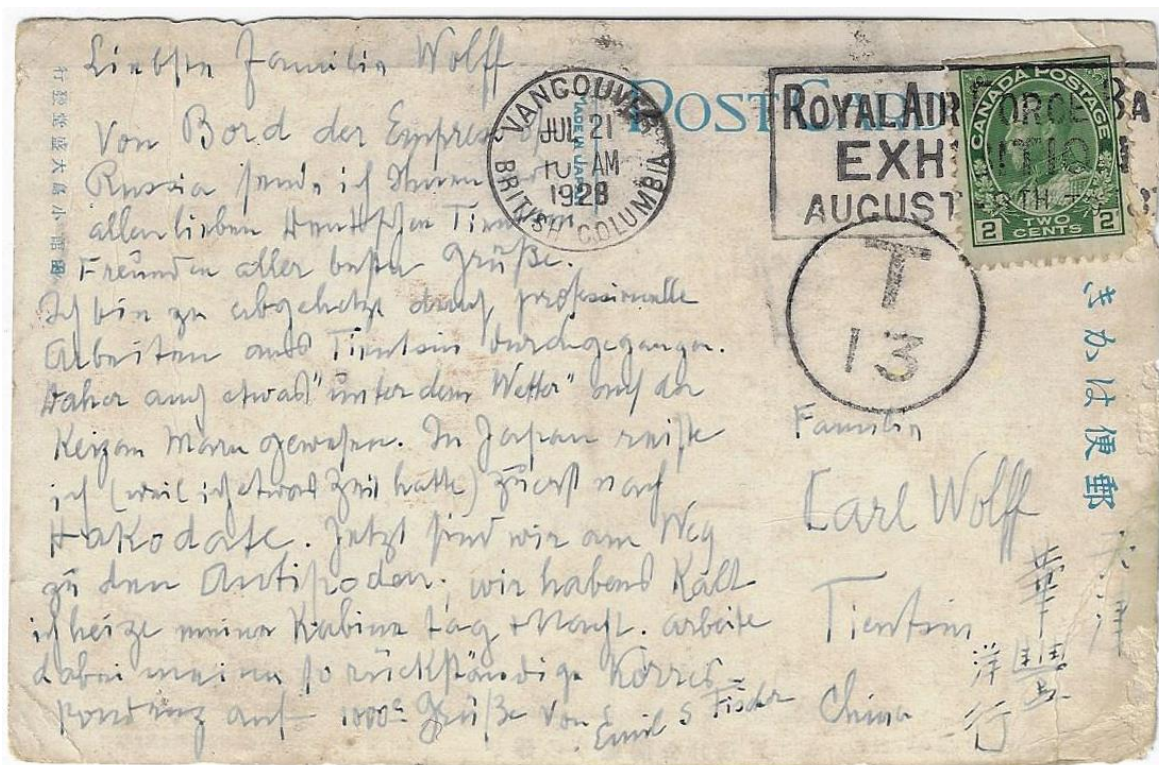 Liebste Familie Wolff
Von Bord der Empress of
Russia sende ich Ihnen und
allen lieben deutschen Tientsin
Freunden aller beste Grüße.
Ich bin zu abgehetzt durch professionelle
Arbeiten aus Tientsin durchgegangen.
Daher auch etwas "unter dem Wetter" auf der
Maru gewesen. In Japan reiste
ich (weil ich etwas Zeit hatte) zuerst nach
Hakodate. Jetzt sind wir am Weg
zu den Antipoden, wir habens Kalt
ich heize meine Kabine tag + Nacht. arbeite
dabei meine so rückständige Korres
pondenz auf 1000e Grüße von
Emil S Fischer
POST CARD
MADE IN JAPAN
VANCOUVER
JUL 21
10 AM
1928
BRITISH COLUMBIA
ROYAL AIR FORCE BA
EXHIBITION
AUGUST
CANADA POSTAGE
2 TWO CENTS 2
T
13
きかは便郵
Familie
Carl Wolff
Tientsin
China
天津
華豐
洋行